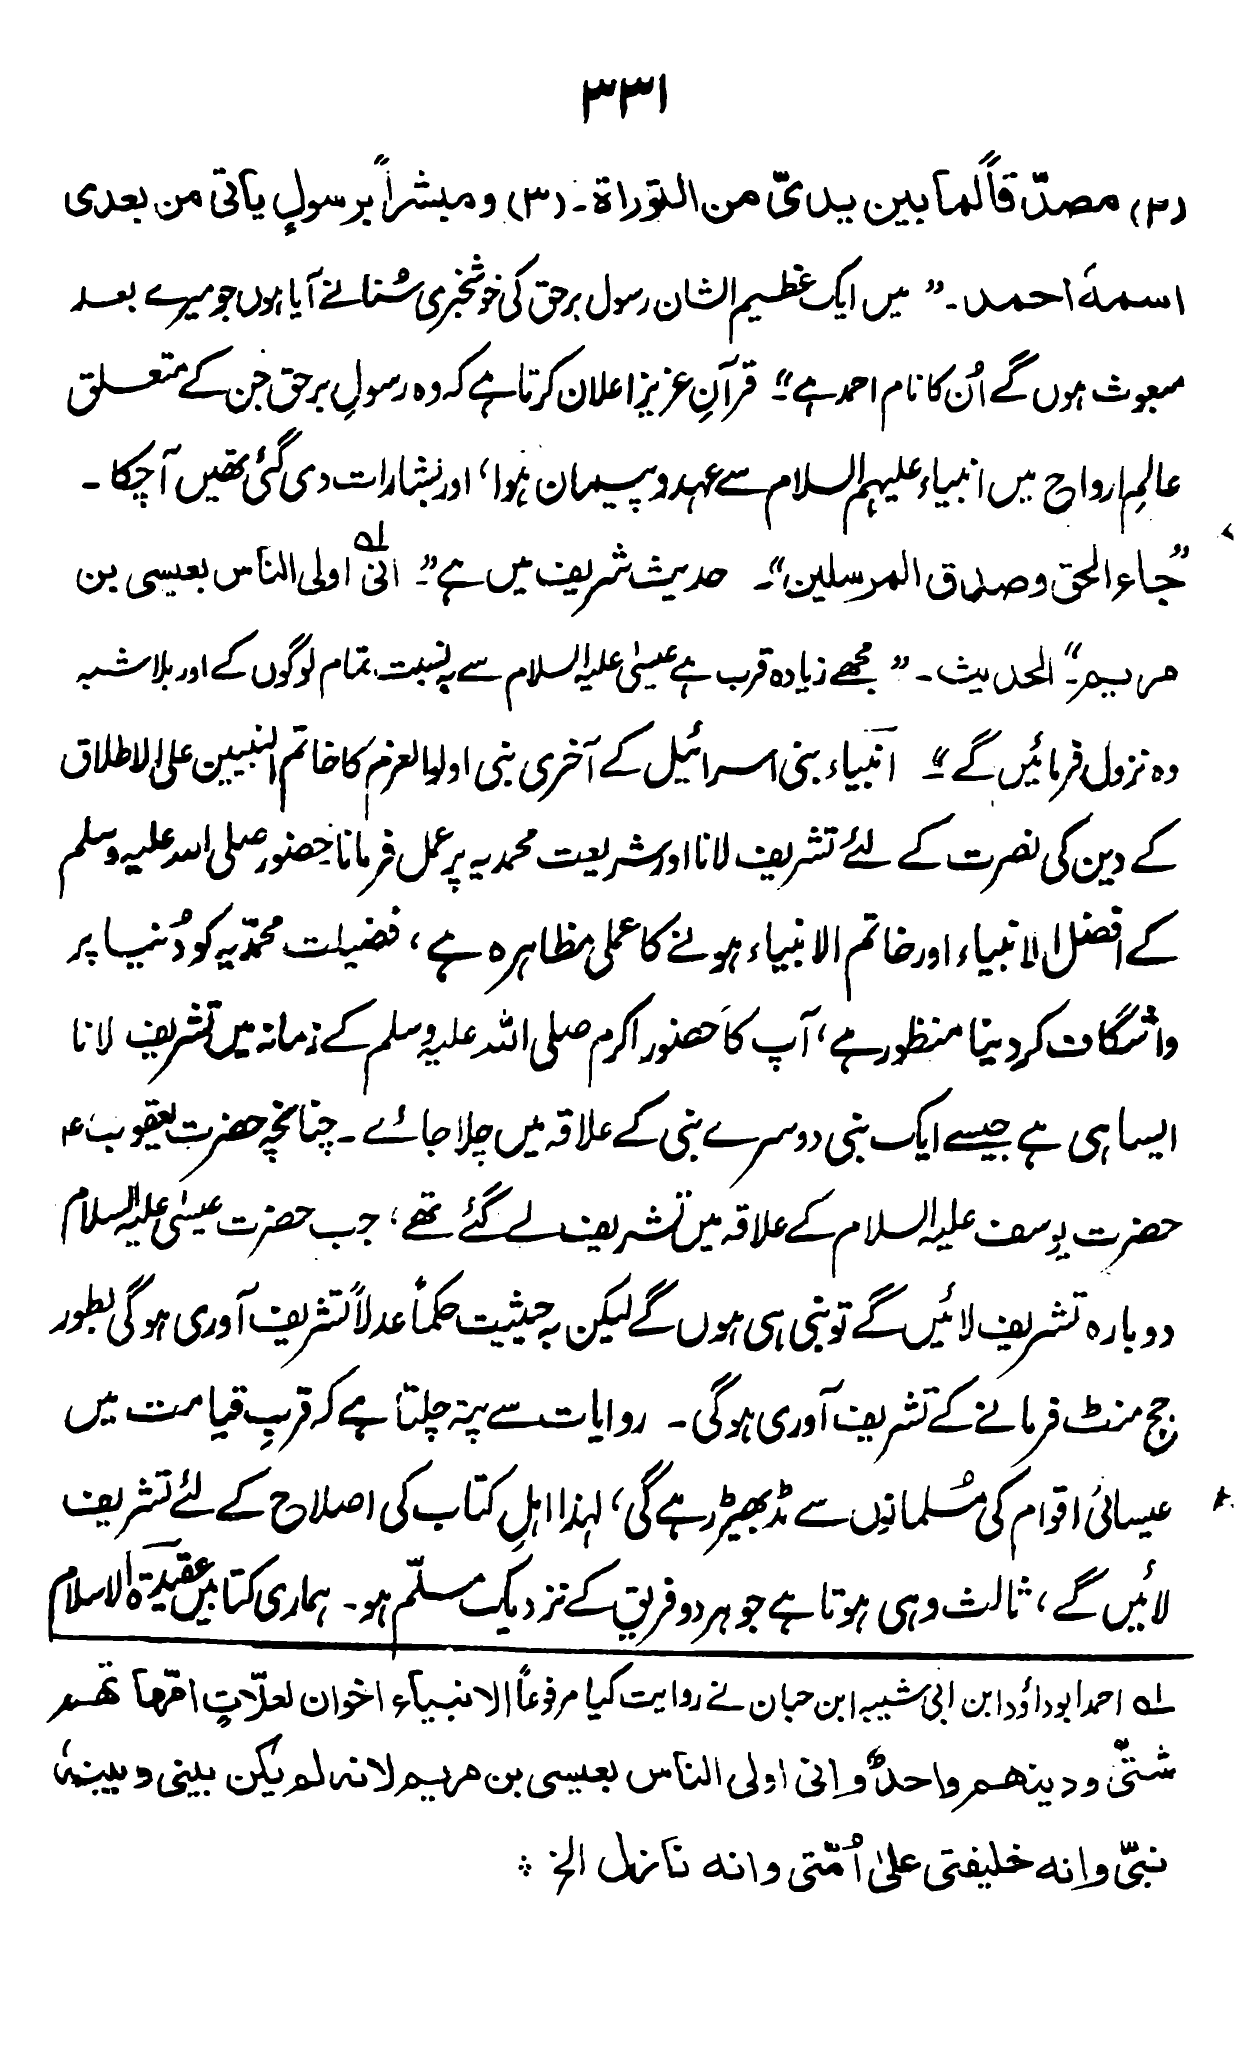 ۳۳۱
(۲) مصدّقاً لما بین یدیّ من التوراۃ۔ (۳) و مبشراً برسولٍ یاتی من بعدی
اسمہٗ احمد۔ ” میں ایک عظیم الشان رسول برحق کی خوشخبری سُنانے آیا ہوں جو میرے بعد
مبعوث ہوں گے اُن کا نام احمد ہے“۔ قرآنِ عزیز اعلان کرتا ہے کہ وہ رسولِ برحق جن کے متعلق
عالمِ ارواح میں انبیاء علیہم السلام سے عہد و پیمان ہوا، اور بشارات دی گئی تھیں آچکا ۔
”جاء الحق و صدق المرسلین“۔ حدیث شریف میں ہے ”۔ انی لہ اولی الناس بعیسی بن
مریم“۔ الحدیث ۔ ” مجھے زیادہ قرب ہے عیسیٰ علیہ السلام سے بہ نسبت تمام لوگوں کے اور بلا شبہ
وہ نزول فرمائیں گے “۔ انبیاء بنی اسرائیل کے آخری نبی اولوالعزم کا خاتم النبیین علی الاطلاق
کے دین کی نصرت کے لئے تشریف لانا اور شریعت محمدیہ پر عمل فرمانا حضور صلی اللہ علیہ وسلم
کے افضل الانبیاء اور خاتم الانبیاء ہونے کا عملی مظاہرہ ہے ، فضیلت محمدّیہ کو دُنیا پر
واشگاف کردینا منظور ہے ، آپ کا حضور اکرم صلی اللہ علیہ وسلم کے زمانہ میں تشریف لانا
ایسا ہی ہے جیسے ایک نبی دوسرے نبی کے علاقہ میں چلا جائے ۔ چنانچہ حضرت یعقوب ؑ
حضرت یوسف علیہ السلام کے علاقہ میں تشریف لے گئے تھے ، جب حضرت عیسٰی علیہ السلام
دوبارہ تشریف لائیں گے تو نبی ہی ہوں گے لیکن بہ حیثیت حکماً عدلاً تشریف آوری ہوگی بطور
جج منٹ فرمانے کے تشریف آوری ہوگی ۔ روایات سے پتہ چلتا ہے کہ قربِ قیامت میں
عیسائی اقوام کی مُسلمانوں سے مڈبھیڑ رہے گی ، لہٰذا اہلِ کتاب کی اصلاح کے لئے تشریف
لائیں گے ، ثالث وہی ہوتا ہے جو ہر دو فریق کے نزدیک مسلّم ہو ۔ ہماری کتابیں عقیدۃ الاسلام
لہ احمد ابو داؤد ابن ابی شیبہ ابن حبان نے روایت کیا مرفوعاً الانبیاء اخوان لعلّاتٍ امّہاتھم
شتیّٰ و دینھم واحدٌ و انی اولی الناس بعیسی بن مریم لانہ لم یکن بینی و بینہٗ
نبیّ و انہ خلیفتی علیٰ اُمّتی وانہ نازل الخ ⁘